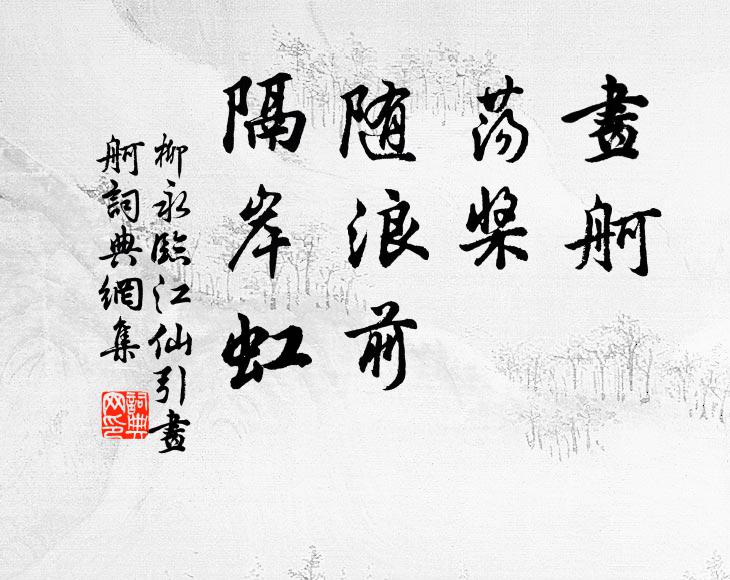 畫舸
荡槳
随浪前
隔岸虹
柳永臨江仙引畫
舸詞典網集
詞典
网印